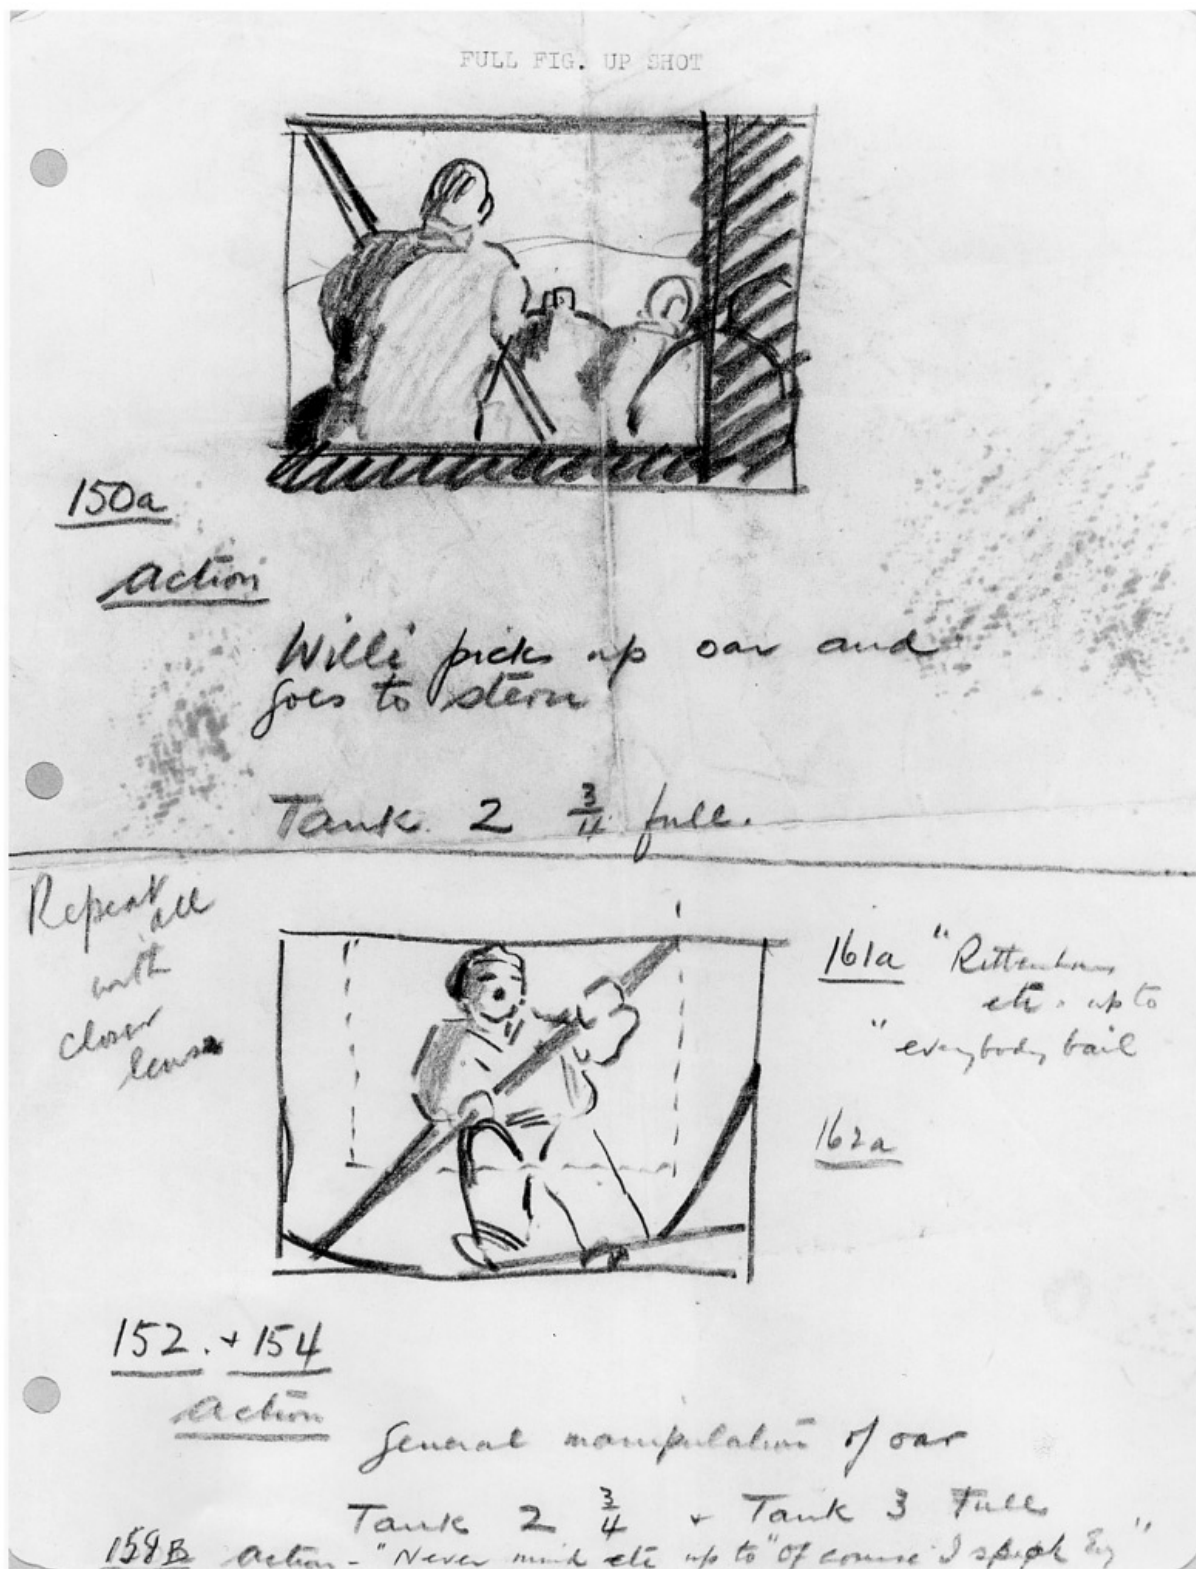 FULL FIG. UP SHOT
150a
Action
Willi picks up oar and
goes to stern
Tank 2 3/4 full.
Repeat
all
with
closer
lense
161a "Rittenhaus
etc. up to
"everybody bail
162a
152. + 154
Action
General manipulation of oar
Tank 2 3/4 + Tank 3 Full
158B Action - "Never mind etc up to "Of course I speak Eng"